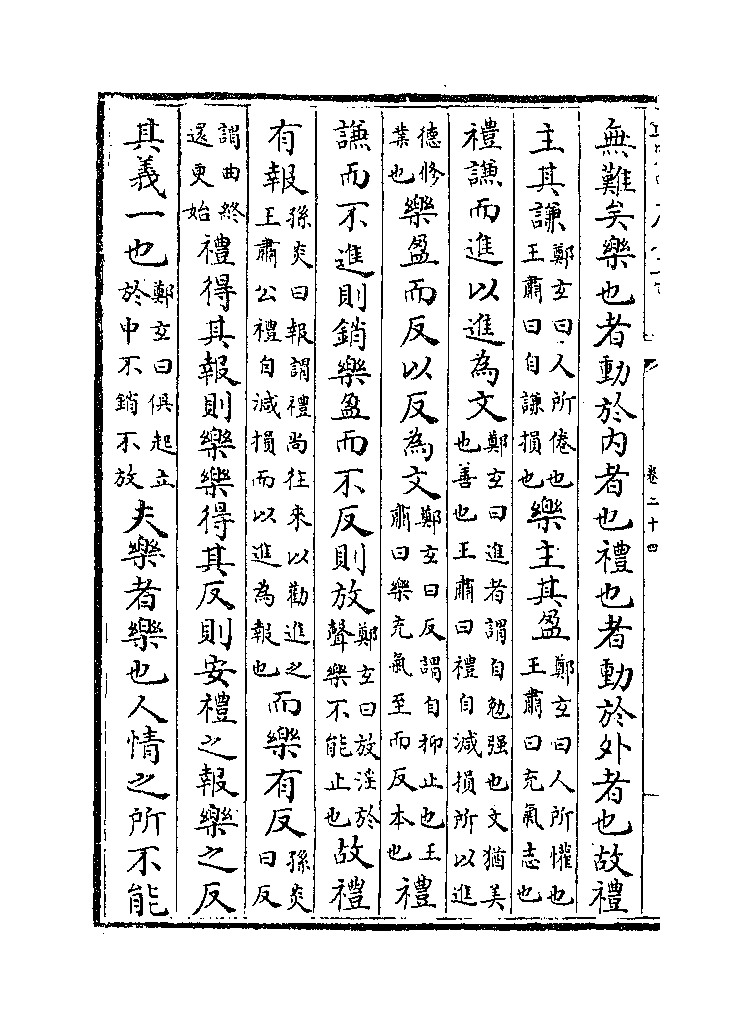 無難矣樂也者動於内者也禮也者動於外者也故禮
主其謙鄭玄曰人所倦也王肅曰自謙損也樂主其盈鄭玄曰人所懽也王肅曰充氣志也
禮謙而進以進為文鄭玄曰進者謂自勉强也文猶美也善也王肅曰禮自減損所以進
德修業也樂盈而反以反為文鄭玄曰反謂自抑止也王肅曰樂充氣至而反本也禮
謙而不進則銷樂盈而不反則放鄭玄曰放淫於聲樂不能止也故禮
有報孫炎曰報謂禮尚往來以勸進之王肅公禮自減損而以進為報也而樂有反孫炎曰反
謂曲終還更始禮得其報則樂樂得其反則安禮之報樂之反
其義一也鄭玄曰俱起立於中不銷不放夫樂者樂也人情之所不能
卷二十四